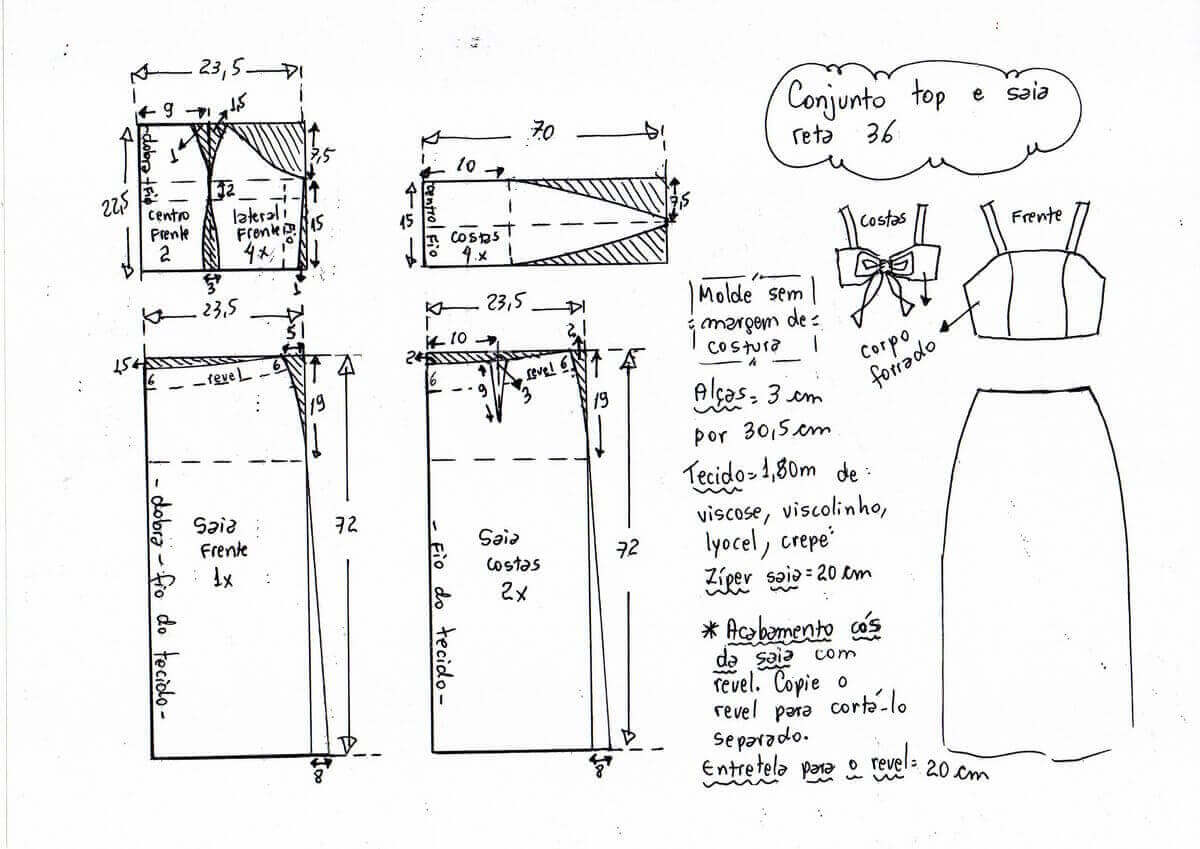 Conjunto top e saia
reta 36
23,5
9
1,5
1
dobra fio
22,5
7,5
2
15
centro
Frente
2
lateral
Frente
4x
fio
3
1
70
10
15
7,5
centro fio
costas
4x
Costas
Frente
corpo
forrado
23,5
5
1,5
6
revel
6
19
72
Saia
Frente
1x
-dobra-fio do tecido-
8
23,5
10
2
2
6
9
3
revel 6
19
72
Saia
costas
2x
-Fio do tecido-
8
Molde sem
margem de
costura
Alças= 3 cm
por 30,5cm
Tecido=1,80m de:
viscose, viscolinho,
lyocel, crepe
Zíper saia=20 cm
* Acabamento cós
da saia com
revel. Copie o
revel para cortá-lo
separado.
Entretela para o revel= 20 cm